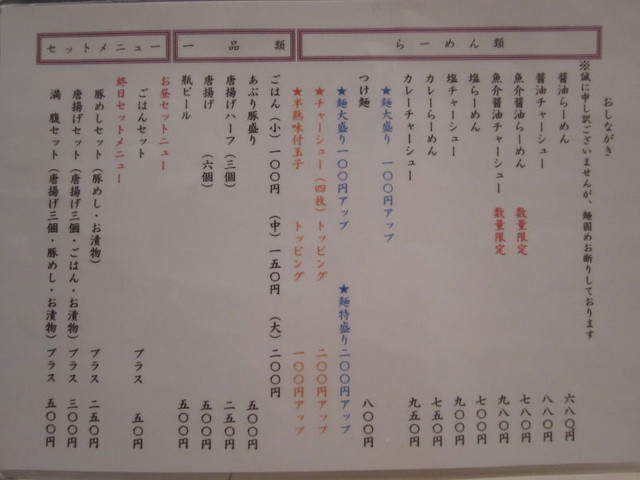 おしながき
※誠に申し訳ございませんが、麺固めお断りしております
らーめん類
醤油らーめん 六八〇円
醤油チャーシュー 八八〇円
魚介醤油らーめん 数量限定 七八〇円
魚介醤油チャーシュー 数量限定 九八〇円
塩らーめん 七〇〇円
塩チャーシュー 九〇〇円
カレーらーめん 七五〇円
カレーチャーシュー 九五〇円
★麺大盛り 一〇〇円アップ
つけ麺 八〇〇円
★麺大盛り一〇〇円アップ ★麺特盛り二〇〇円アップ
★チャーシュー(四枚)トッピング 二〇〇円アップ
★半熟味付玉子 トッピング 一〇〇円アップ
一品類
ごはん(小)一〇〇円 (中)一五〇円 (大)二〇〇円
あぶり豚盛り 五〇〇円
唐揚げハーフ(三個) 二五〇円
唐揚げ (六個) 五〇〇円
瓶ビール 五〇〇円
セットメニュー
お昼セットニュー
ごはんセット プラス 五〇円
終日セットメニュー
豚めしセット(豚めし・お漬物) プラス 二五〇円
唐揚げセット(唐揚げ三個・ごはん・お漬物) プラス 三〇〇円
満腹セット(唐揚げ三個・豚めし・お漬物) プラス 五〇〇円